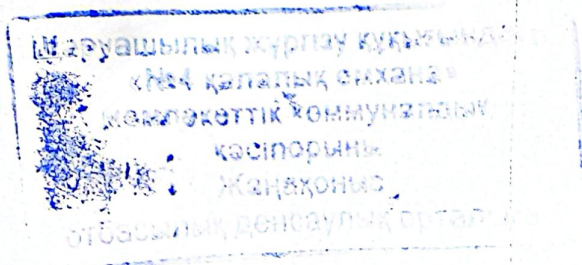 Шаруашылық жүргізу құқығындағы
«№4 қалалық емхана»
мемлекеттік коммуналдық
кәсіпорыны
Жаңақоныс
отбасылық денсаулық орталығы